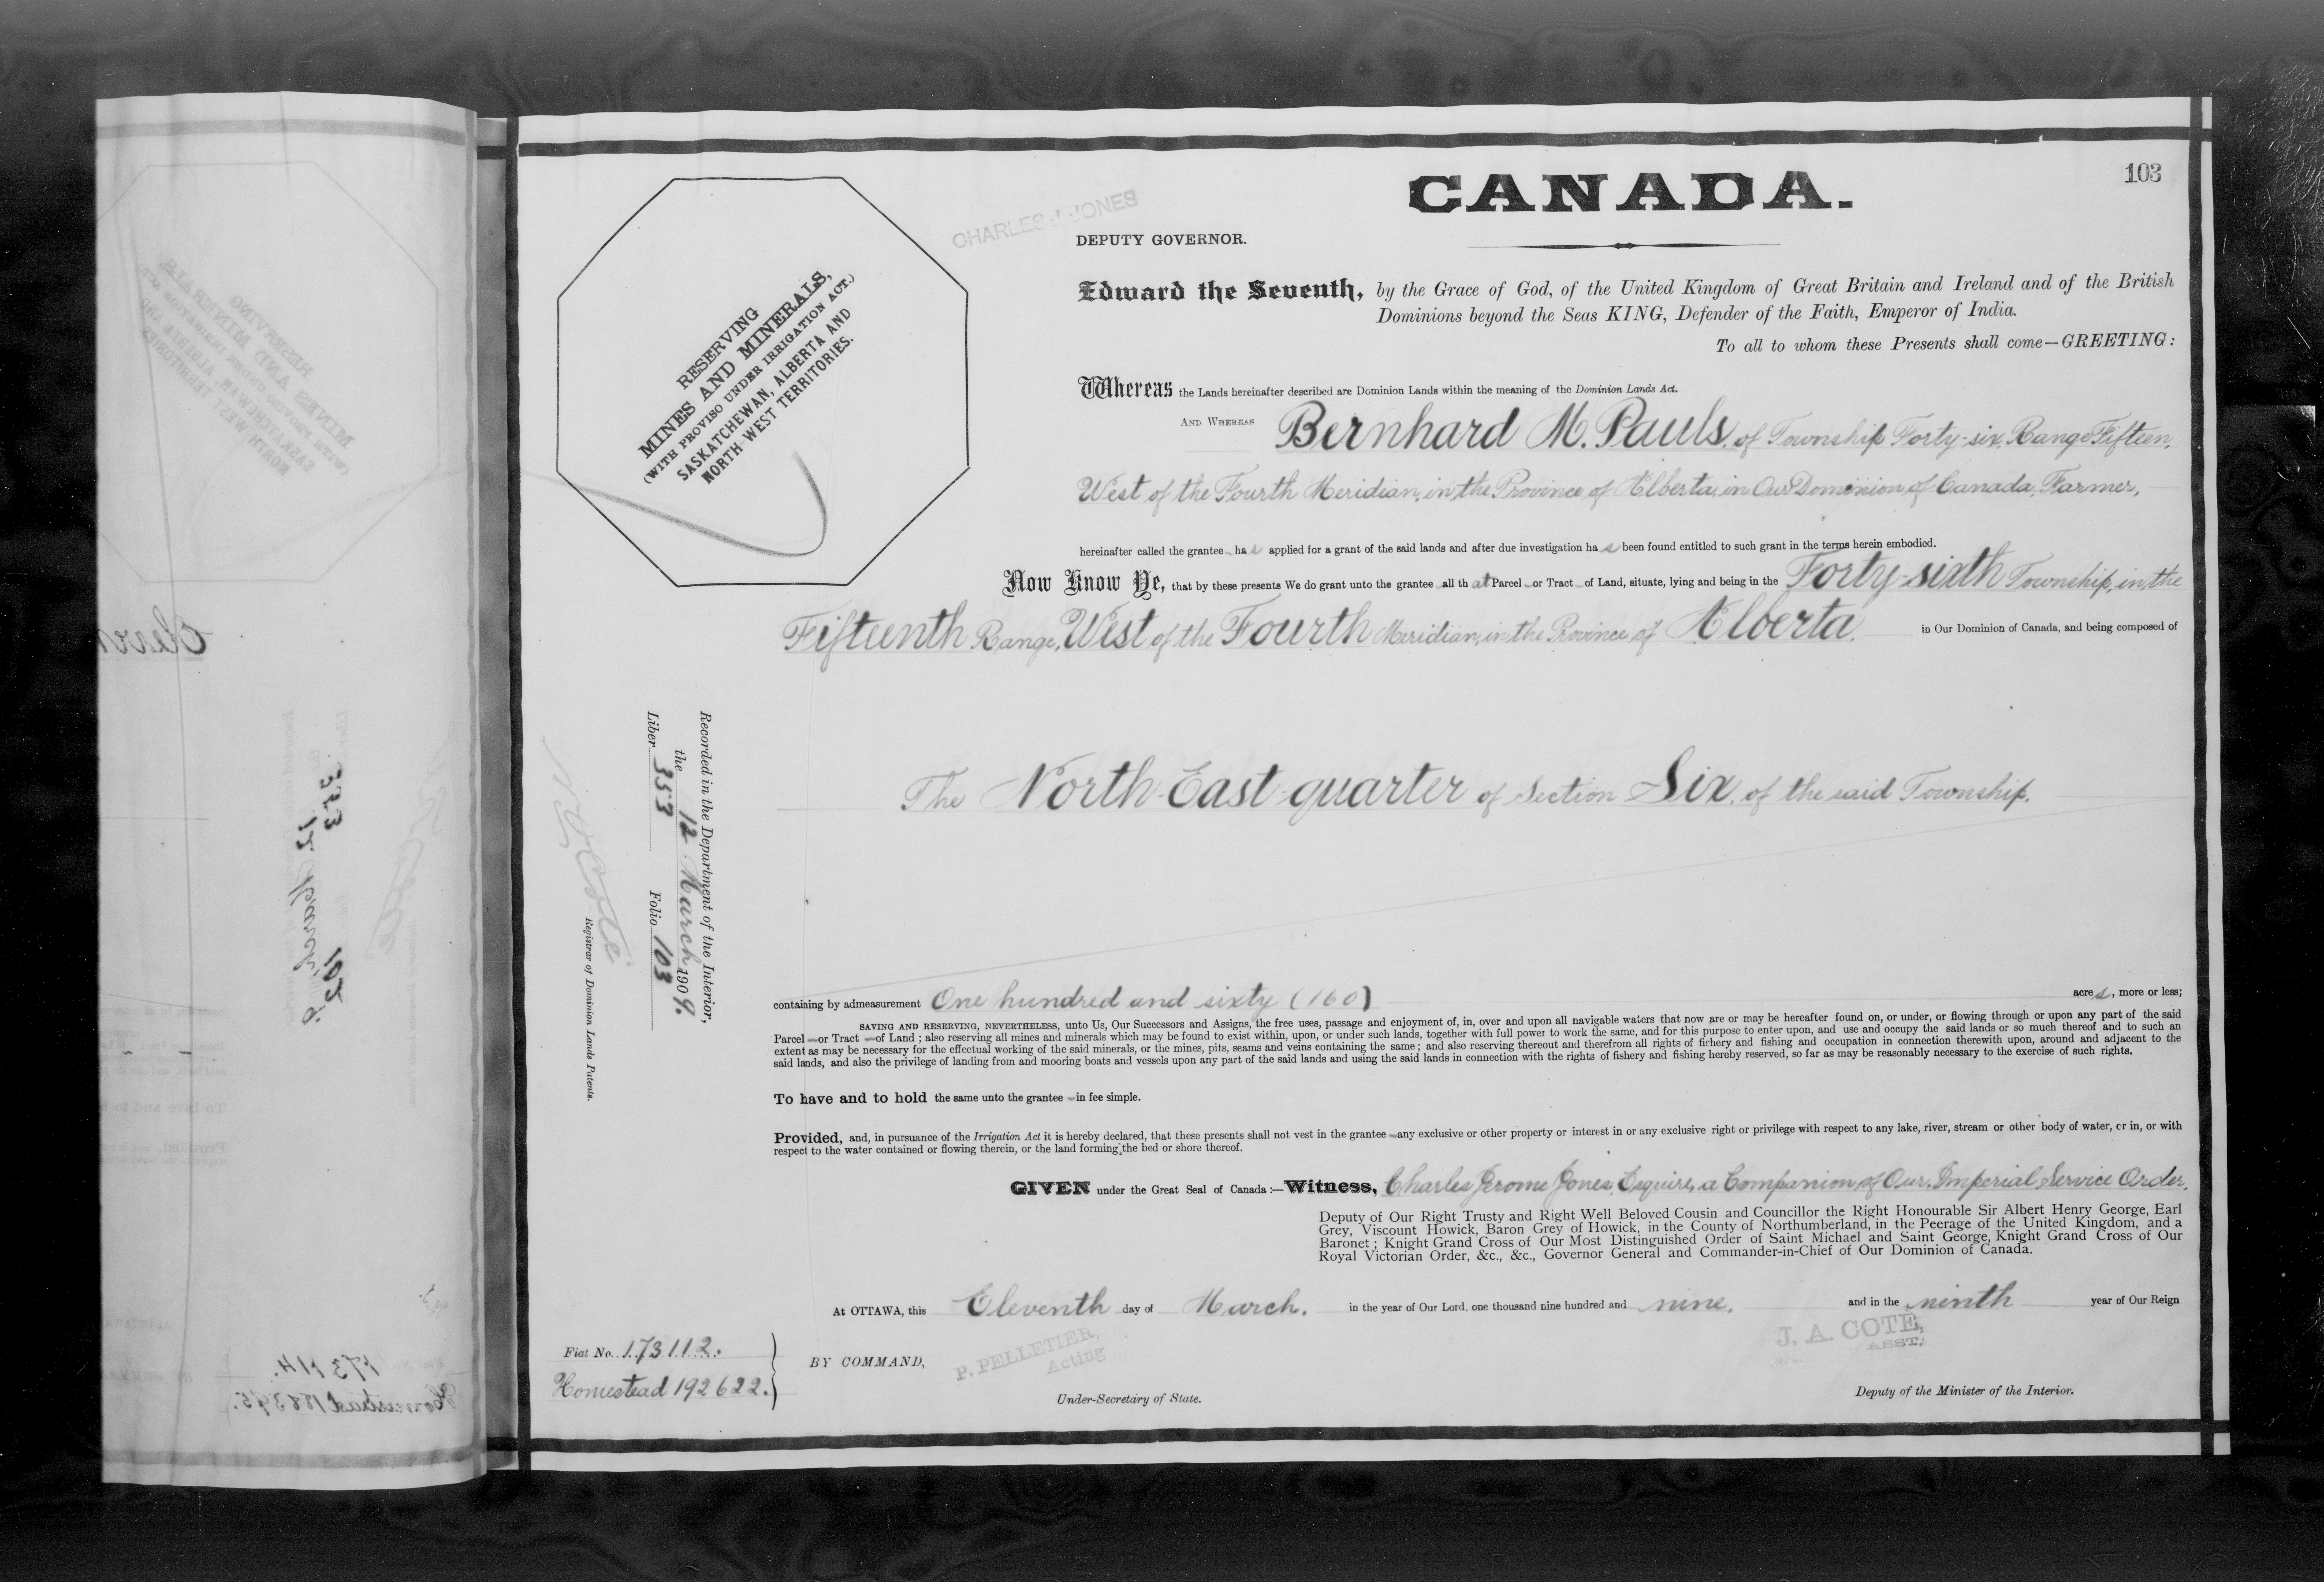 103
CANADA.
CHARLES J. JONES
DEPUTY GOVERNOR.
RESERVING
MINES AND MINERALS,
(WITH PROVISO UNDER IRRIGATION ACT.)
SASKATCHEWAN, ALBERTA AND
NORTH WEST TERRITORIES.
Edward the Seventh, by the Grace of God, of the United Kingdom of Great Britain and Ireland and of the British
Dominions beyond the Seas KING, Defender of the Faith, Emperor of India.
To all to whom these Presents shall come—GREETING:
Whereas the Lands hereinafter described are Dominion Lands within the meaning of the Dominion Lands Act.
AND WHEREAS Bernhard M. Pauls, of Township Forty-six, Range Fifteen,
West of the Fourth Meridian, in the Province of Alberta, in Our Dominion of Canada, Farmer,
hereinafter called the grantee has applied for a grant of the said lands and after due investigation has been found entitled to such grant in the terms herein embodied.
Now Know Ye, that by these presents We do grant unto the grantee all that Parcel or Tract of Land, situate, lying and being in the Forty-sixth Township, in the
Fifteenth Range, West of the Fourth Meridian, in the Province of Alberta, in Our Dominion of Canada, and being composed of
The North East quarter of Section Six, of the said Township.
Recorded in the Department of the Interior,
the 12 March 1909.
Liber 353 Folio 103
N O Coté
Registrar of Dominion Lands Patents.
containing by admeasurement One hundred and sixty (160) acres, more or less;
SAVING AND RESERVING, NEVERTHELESS, unto Us, Our Successors and Assigns, the free uses, passage and enjoyment of, in, over and upon all navigable waters that now are or may be hereafter found on, or under, or flowing through or upon any part of the said
Parcel or Tract of Land; also reserving all mines and minerals which may be found to exist within, upon, or under such lands, together with full power to work the same, and for this purpose to enter upon, and use and occupy the said lands or so much thereof and to such an
extent as may be necessary for the effectual working of the said minerals, or the mines, pits, seams and veins containing the same; and also reserving thereout and therefrom all rights of fishery and fishing and occupation in connection therewith upon, around and adjacent to the
said lands, and also the privilege of landing from and mooring boats and vessels upon any part of the said lands and using the said lands in connection with the rights of fishery and fishing hereby reserved, so far as may be reasonably necessary to the exercise of such rights.
To have and to hold the same unto the grantee in fee simple.
Provided, and, in pursuance of the Irrigation Act it is hereby declared, that these presents shall not vest in the grantee any exclusive or other property or interest in or any exclusive right or privilege with respect to any lake, river, stream or other body of water, or in, or with
respect to the water contained or flowing therein, or the land forming the bed or shore thereof.
GIVEN under the Great Seal of Canada:—Witness, Charles Jerome Jones, Esquire, a Companion of Our Imperial Service Order,
Deputy of Our Right Trusty and Right Well Beloved Cousin and Councillor the Right Honourable Sir Albert Henry George, Earl
Grey, Viscount Howick, Baron Grey of Howick, in the County of Northumberland, in the Peerage of the United Kingdom, and a
Baronet; Knight Grand Cross of Our Most Distinguished Order of Saint Michael and Saint George, Knight Grand Cross of Our
Royal Victorian Order, &c., &c., Governor General and Commander-in-Chief of Our Dominion of Canada.
At OTTAWA, this Eleventh day of March. in the year of Our Lord, one thousand nine hundred and nine, and in the ninth year of Our Reign
Fiat No. 173112.
Homestead 192622.
BY COMMAND,
P. PELLETIER,
Acting
Under-Secretary of State.
J. A. COTE,
ASST.
Deputy of the Minister of the Interior.